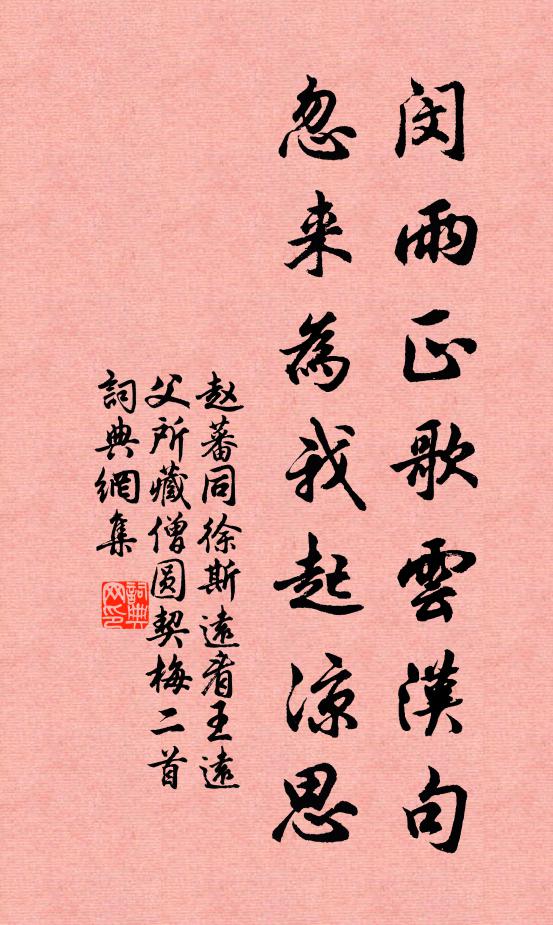 闵雨正歌雲漢句
忽来為我起凉思
赵蕃同徐斯遠看王遠
父所藏僧圆契梅二首
詞典網集
詞典
网印